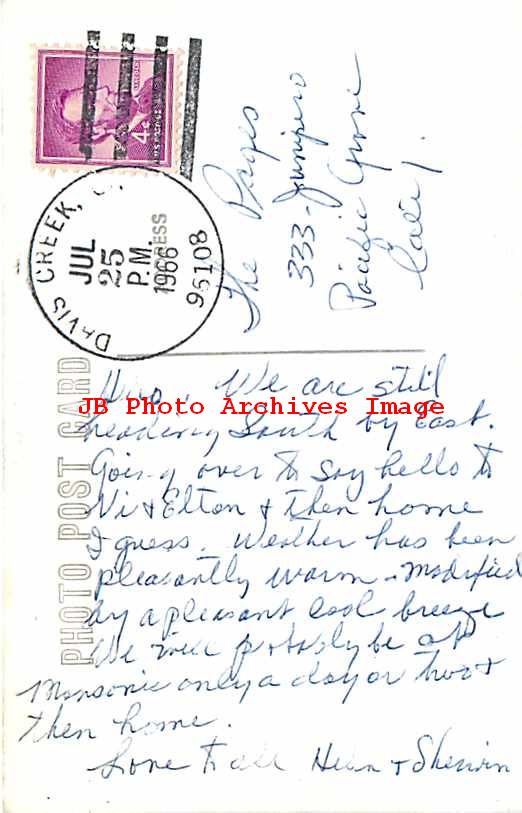 4¢
DAVIS CREEK,
JUL
25
P.M.
1966
96108
The Pages
333 - Junipero
Pacific Grove
Calif.
PHOTO POST CARD
JB Photo Archives Image
We are still
heading South by East.
Going over to say hello to
Vi & Elton & then home
I guess. Weather has been
pleasantly warm - modified
by a pleasant cool breeze
We will probably be at
only a day or two &
then home.
Love to all Helen & Sherwin